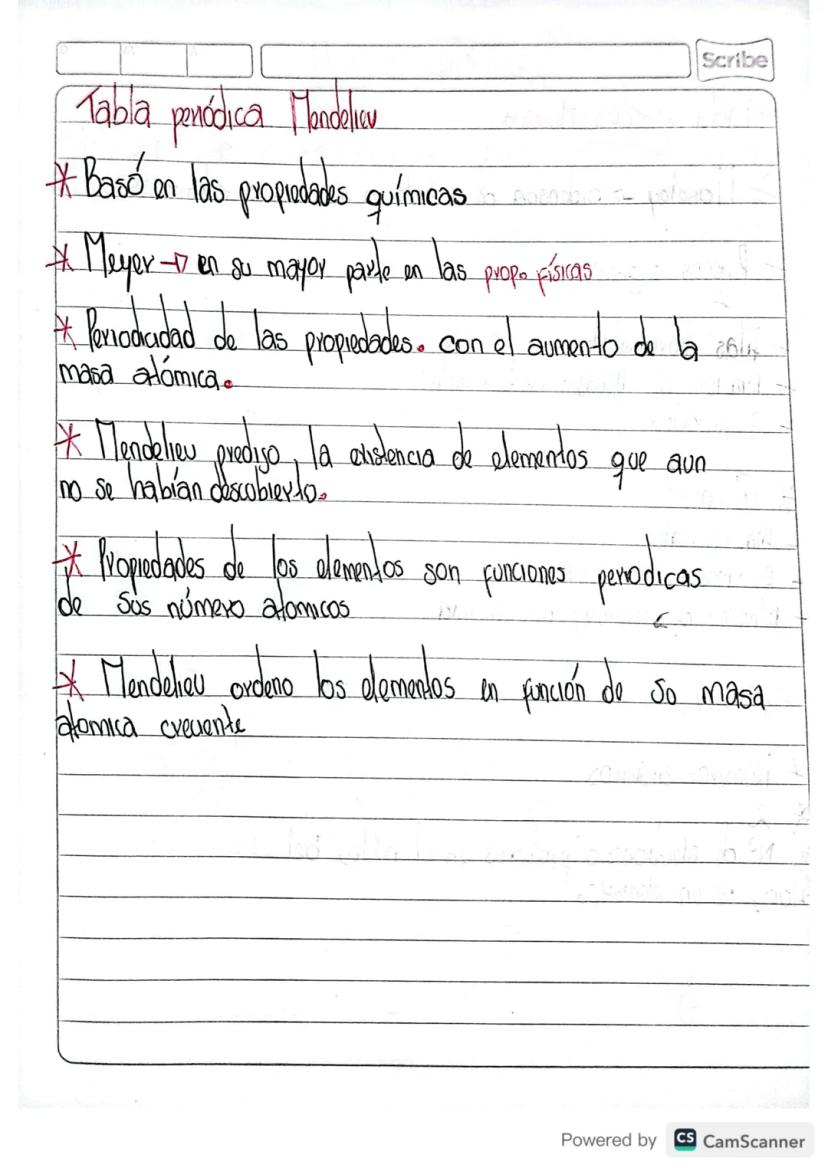 Scribe
Tabla periódica Mendeliev
* Basó en las propiedades químicas
* Meyer → en su mayor parte en las prop. físicas
* Periodicidad de las propiedades. con el aumento de la
masa atómica.
* Mendeliev predijo, la existencia de elementos que aun
no se habían descobierto.
* Propiedades de los elementos son funciones periodicas
de sus número atomicos
* Mendeliev ordeno los elementos en función de so masa
atomica creciente
Powered by CS CamScanner